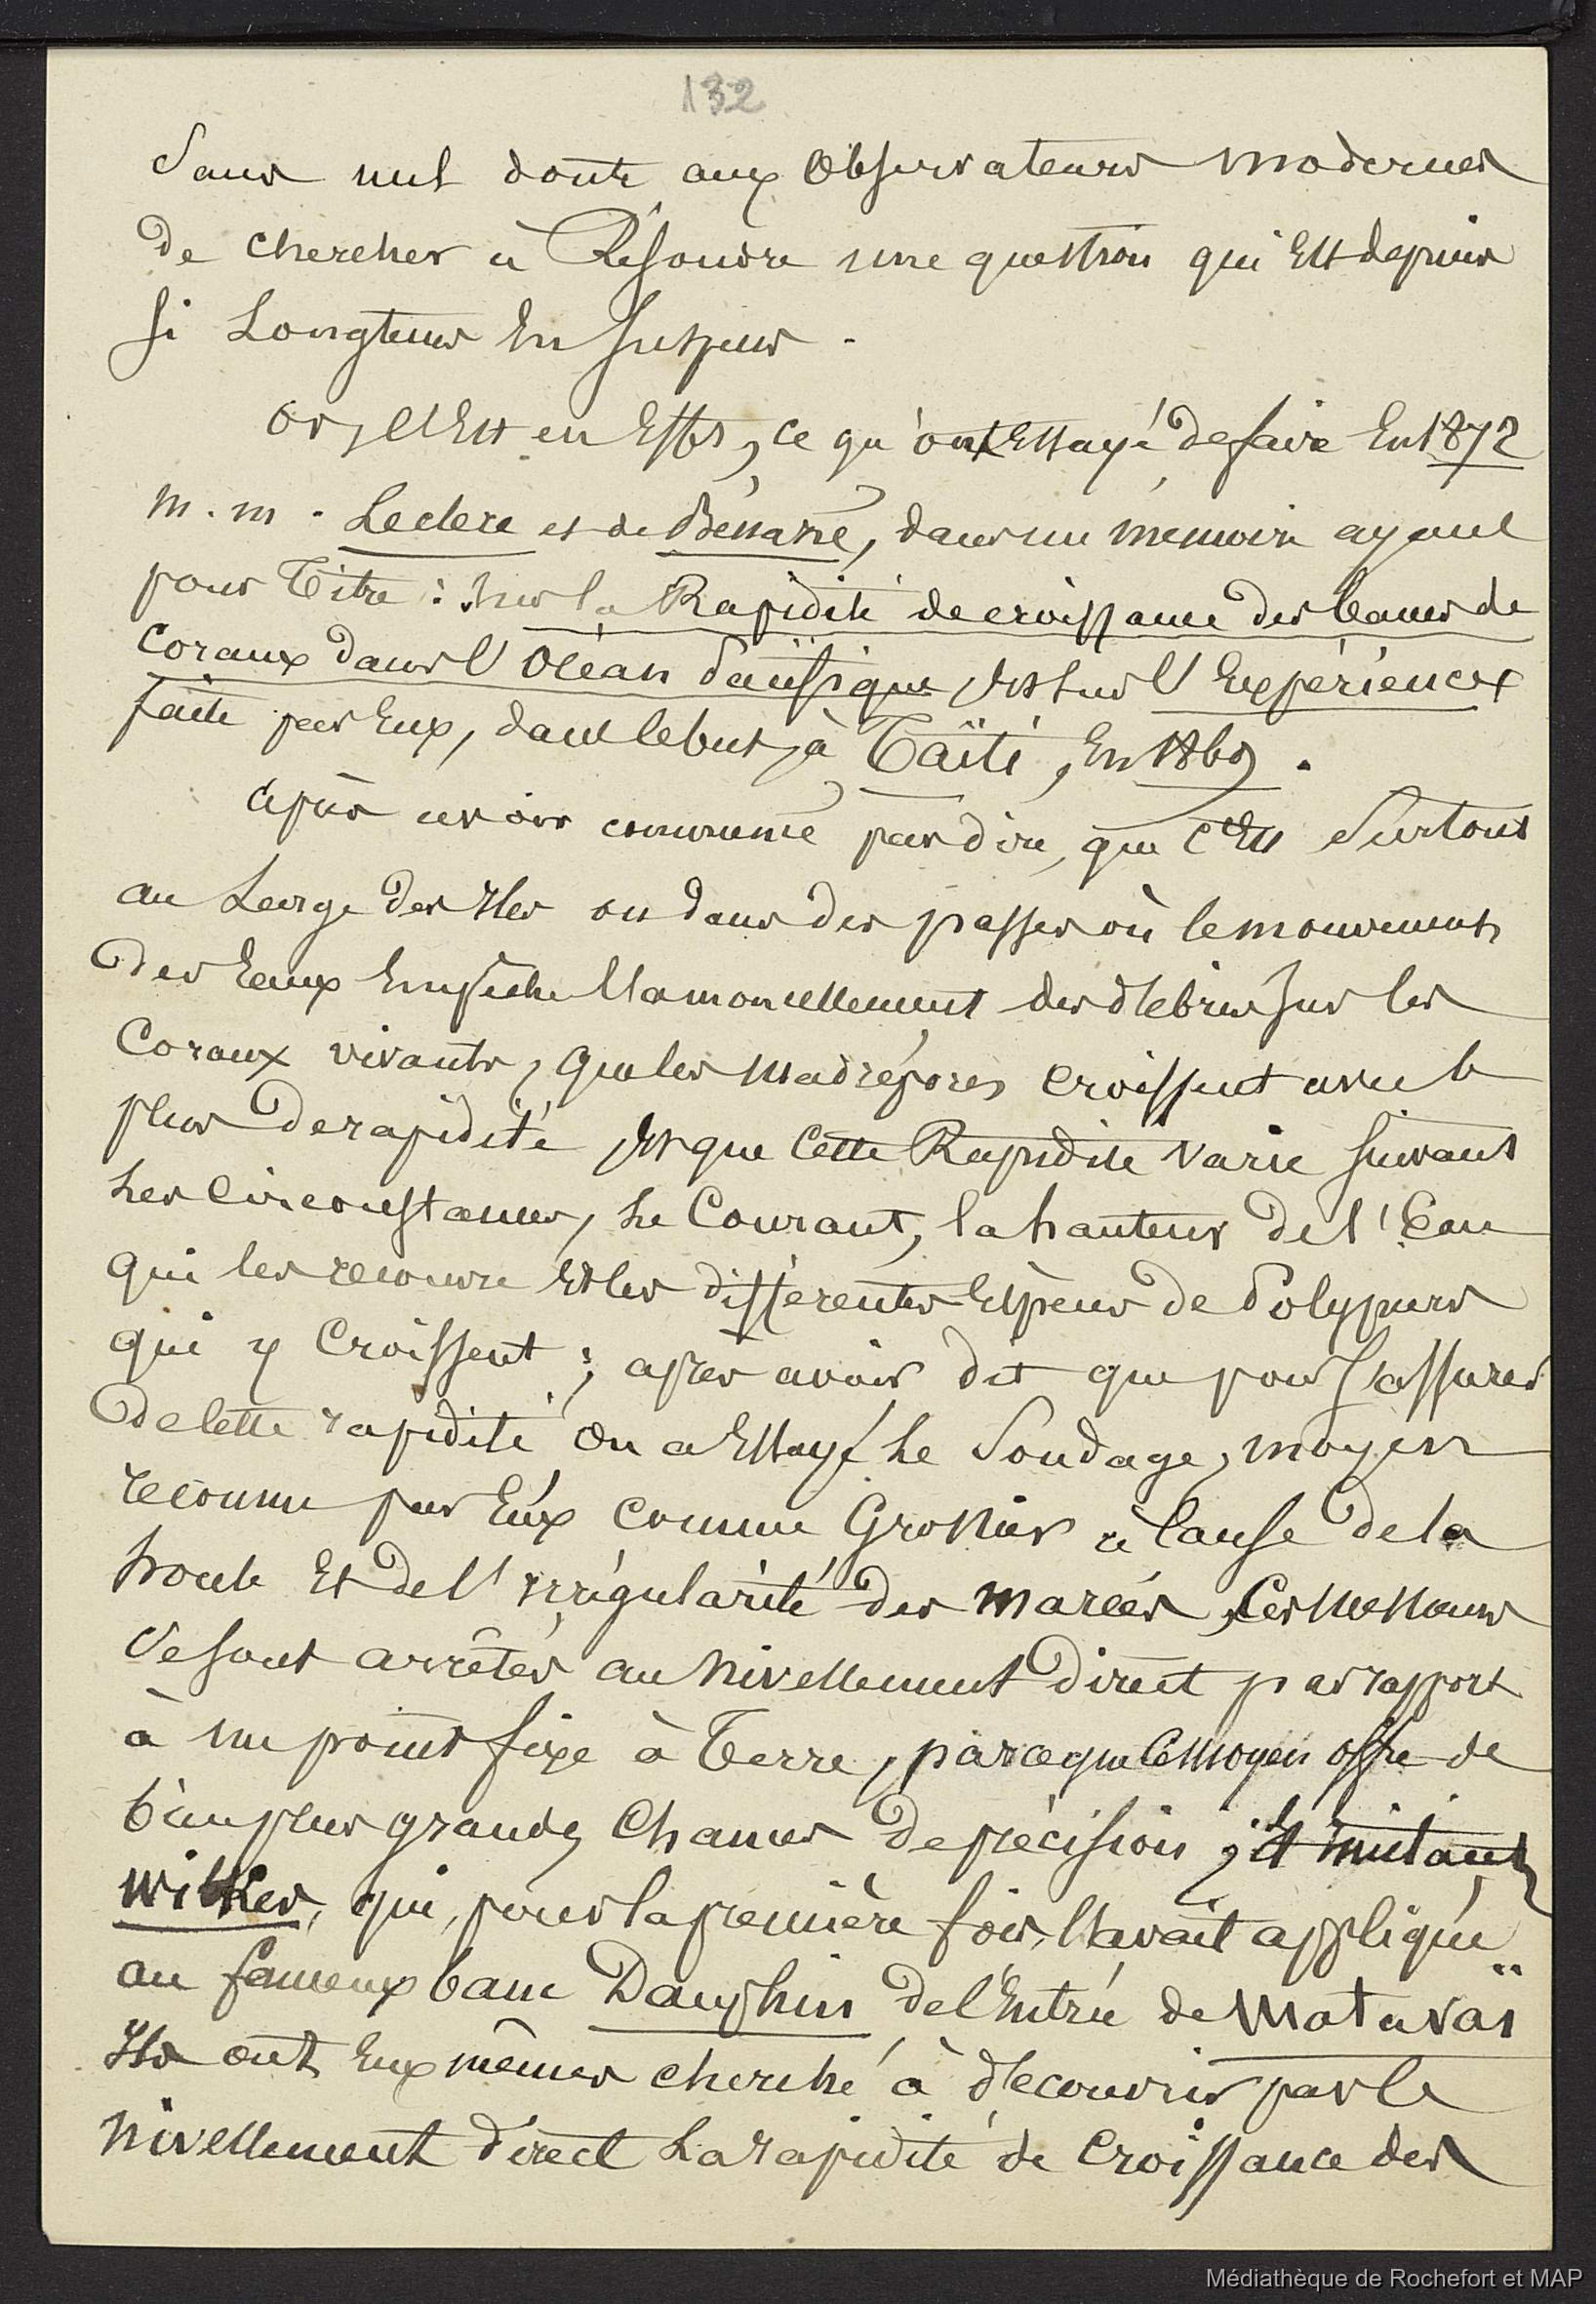 132
Sans nul doute aux Observateurs modernes
de chercher à Résoudre une question qui Est depuis
si Longtems En suspens.
Or, c'Est en Effet, ce qu'ont Essayé de faire En 1872
M. M. Leclerc et de Bénazé, dans un mémoire ayant
pour Titre : Sur la Rapidité de croissance des bancs de
Coraux dans l'Océan Pacifique et sur l'Expérience
faite par Eux, dans le but, à Taïti, En 1869.
après avoir commencé par dire, que c'Est Surtout
au Large des Iles ou dans des passes où le mouvement
des Eaux Empêche l'amoncellement des débris sur les
Coraux vivants, que les Madrépores croissent avec le
plus de rapidité et que Cette Rapidité varie suivant
Les Circonstances, Le Courant, la hauteur de l'Eau
qui les recouvre et les différentes Espèces de Polypiers
qui y Croissent ; après avoir dit que pour s'assurer
de cette rapidité on a Essayé Le Sondage, moyen
reconnu par Eux comme Grossier à Cause de la
houle Et de l'irrégularité des marées, Ces Messieurs
Se sont arrêtés au Nivellement Direct par rapport
à un point fixe à Terre, parceque Ce Moyen offre de
bien plus grandes Chances de précision ; Et imitant
Wilkes, qui, pour la première fois, l'avait appliqué
au fameux banc Dauphin de l'Entrée de Matavaï
Ils ont Eux mêmes cherché à découvrir par le
Nivellement direct La rapidité de Croissance des
Médiathèque de Rochefort et MAP